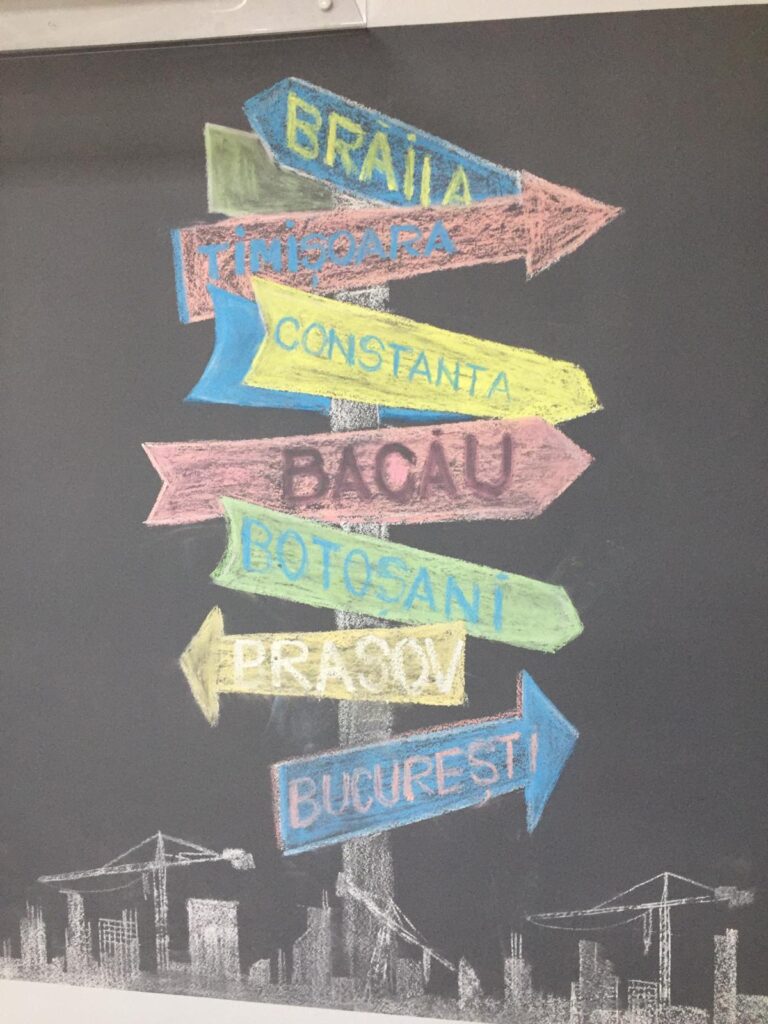 BRĂILA
TIMIȘOARA
CONSTANTA
BACĂU
BOTOȘANI
PRASOV
BUCUREȘTI